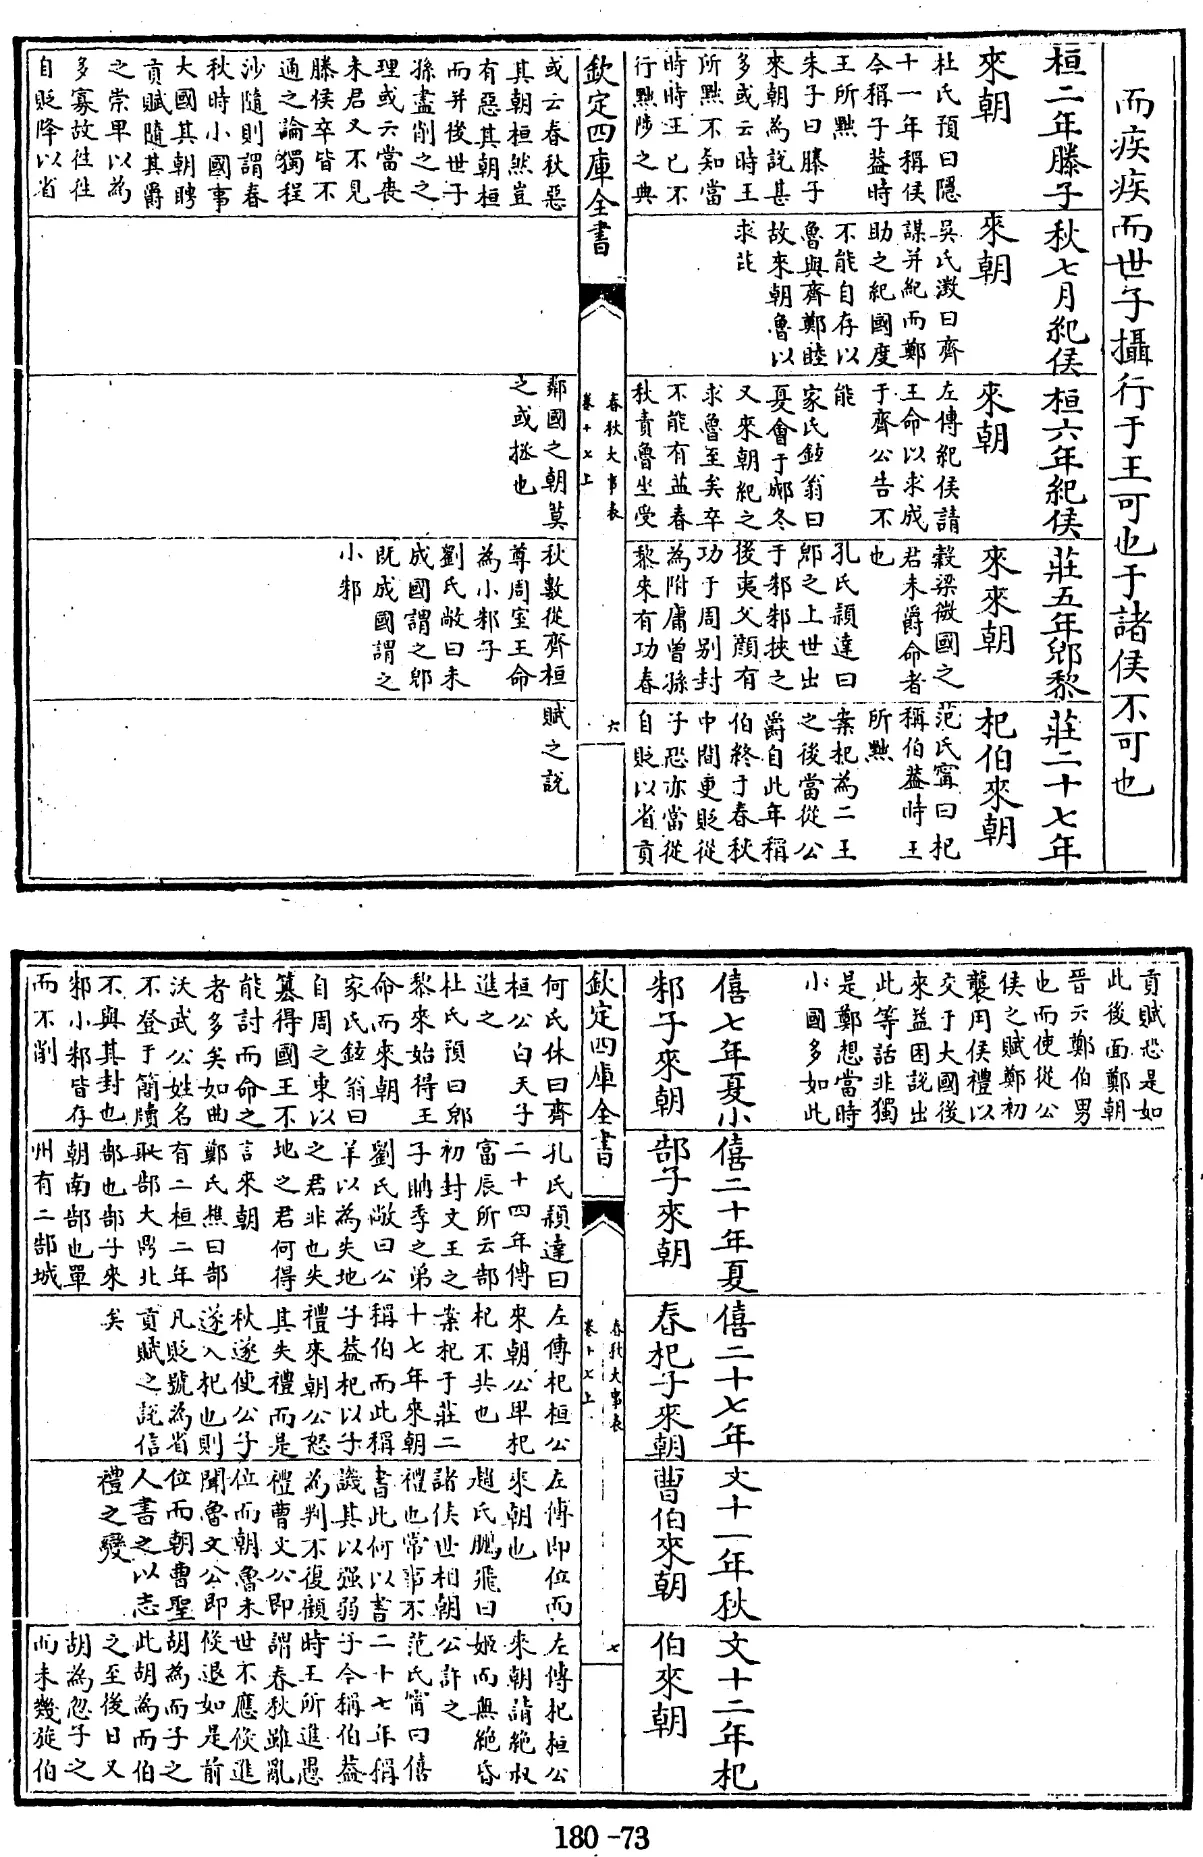 而疾疾而世子攝行于王可也于諸侯不可也
桓二年滕子
來朝
杜氏預曰隱
十一年稱侯
今稱子葢時
王所黜
朱子曰滕子
來朝為説甚
多或云時王
所黜不知當
時時王已不
行黜陟之典
秋七月紀侯
來朝
吳氏澂曰齊
謀并紀而鄭
助之紀國度
不能自存以
魯與齊鄭睦
故來朝魯以
求庇
桓六年紀侯
來朝
左傳紀侯請
王命以求成
于齊公告不
能
家氏鉉翁曰
夏會于郕冬
又來朝紀之
求魯至矣卒
不能有益春
秋責魯坐受
莊五年郳黎
來來朝
穀梁微國之
君未爵命者
也
孔氏穎達曰
郳之上世出
于邾邾挾之
後夷父顔有
功于周别封
為附庸曾孫
黎來有功春
莊二十七年
杞伯來朝
范氏甯曰杞
稱伯葢時王
所黜
案杞為二王
之後當從公
爵自此年稱
伯終于春秋
中間更貶從
子恐亦當從
自貶以省貢
欽定四庫全書
春秋大事表
卷十七上
六
或云春秋惡
其朝桓然豈
有惡其朝桓
而并後世子
孫盡削之之
理或云當喪
未君又不見
滕侯卒皆不
通之論獨程
沙隨則謂春
秋時小國事
大國其朝聘
貢賦隨其爵
之崇卑以為
多寡故往往
自貶降以省
鄰國之朝莫
之或拯也
秋數從齊桓
尊周室王命
為小邾子
劉氏敞曰未
成國謂之郳
既成國謂之
小邾
賦之説
貢賦恐是如
此後面鄭朝
晉云鄭伯男
也而使從公
侯之賦鄭初
襲用侯禮以
交于大國後
來益困説出
此等話非獨
是鄭想當時
小國多如此
僖七年夏小
邾子來朝
僖二十年夏
郜子來朝
僖二十七年
春杞子來朝
文十一年秋
曹伯來朝
文十二年杞
伯來朝
欽定四庫全書
春秋大事表
卷十七上
七
何氏休曰齊
桓公白天子
進之
杜氏預曰郳
黎來始得王
命而來朝
家氏鉉翁曰
自周之東以
簒得國王不
能討而命之
者多矣如曲
沃武公姓名
不登于簡牘
不與其封也
邾小邾皆存
而不削
孔氏穎達曰
二十四年傳
富辰所云郜
初封文王之
子聃季之弟
劉氏敞曰公
羊以為失地
之君非也失
地之君何得
言來朝
鄭氏樵曰郜
有二桓二年
取郜大鼎北
郜也郜子來
朝南郜也單
州有二郜城
左傳杞桓公
來朝公卑杞
杞不共也
案杞于莊二
十七年來朝
稱伯而此稱
子葢杞以子
禮來朝公怒
其失禮而是
秋遂使公子
遂入杞也則
凡貶號為省
貢賦之説信
矣
左傳即位而
來朝也
趙氏鵬飛曰
諸侯世相朝
禮也常事不
書此何以書
譏其以强弱
為判不復顧
禮曹文公即
位而朝魯未
聞魯文公即
位而朝曹聖
人書之以志
禮之變
左傳杞桓公
來朝請絶叔
姬而無絶昏
公許之
范氏甯曰僖
二十七年稱
子今稱伯葢
時王所進愚
謂春秋雖亂
世不應倐進
倐退如是前
胡為而子之
此胡為而伯
之至後日又
胡為忽子之
而未幾旋伯
180-73